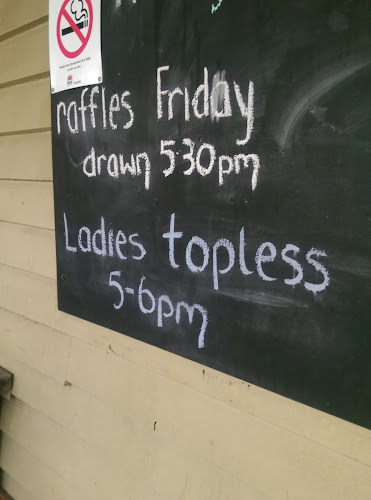 raffles Friday
drawn 530pm
Ladies topless
5-6pm